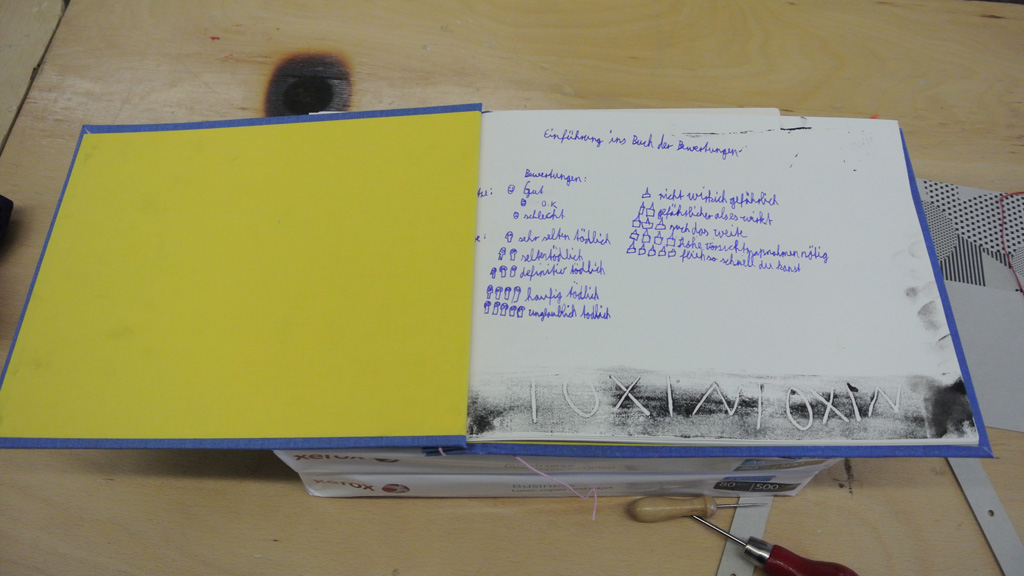 Einführung ins Buch der Bewertungen
Bewertungen:
gut
O.K
schlecht
sehr selten tödlich
selten tödlich
definitiv tödlich
haufig tödlich
unglaublich tödlich
nicht wirklich gefährlich
gefährlicher als es wirkt
such das weite
hohe vorsichtsmasnahmen nötig
flieh so schnell du kanst
TOXIN TOXIN
xerox
xerox
BUSINESS
80
500